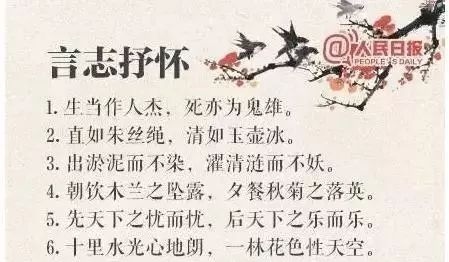 @人民日报
PEOPLE'S DAILY
言志抒怀
1. 生当作人杰，死亦为鬼雄。
2. 直如朱丝绳，清如玉壶冰。
3. 出淤泥而不染，濯清涟而不妖。
4. 朝饮木兰之坠露，夕餐秋菊之落英。
5. 先天下之忧而忧，后天下之乐而乐。
6. 十里水光心地朗，一林花色性天空。